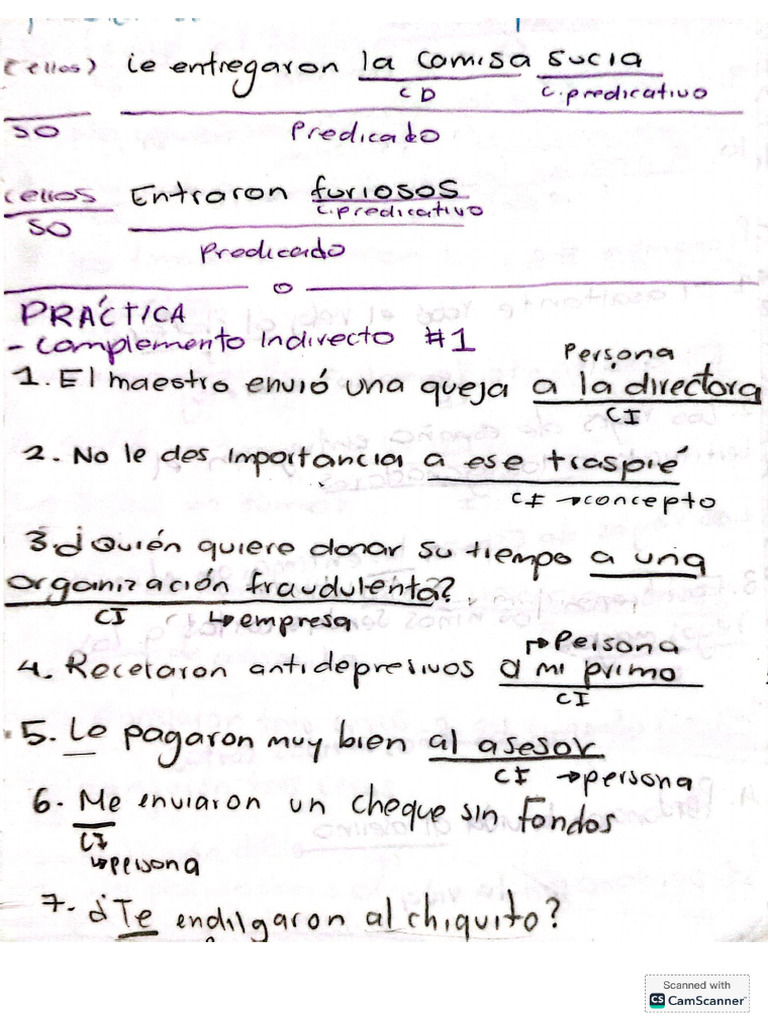 (ellos) le entregaron la camisa sucia
CD C. predicativo
SO Predicado
(ellos Entraron furiosos
C. predicativo
SO
Predicado
PRÁCTICA
- Complemento Indirecto #1
Persona
1. El maestro envió una queja a la directora
CI
2. No le des importancia a ese traspié
CI → concepto
3. ¿Quién quiere donar su tiempo a una
organización fraudulenta?
CI ↳ empresa
↱ Persona
4. Recetaron antidepresivos a mi primo
CI
5. Le pagaron muy bien al asesor
CI → persona
6. Me enviaron un cheque sin fondos
CI
↳ persona
7. ¿Te endilgaron al chiquito?
Scanned with
CS CamScanner